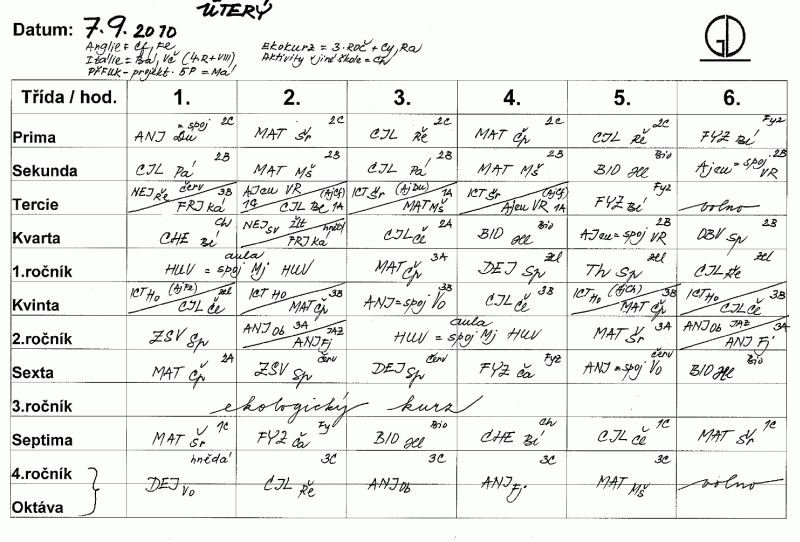 ÚTERÝ
Datum: 7.9.2010
Anglie = Cf, Fe
Ekokurz = 3.ROČ + Cy, Ra
Itálie = Ba, Vč (4.R + VIII)
Aktivity v jiné škole = Ch
PřFUK - projekt. 5P = Ma
Třída / hod. 1. 2. 3. 4. 5. 6.
Prima ANJ = spoj Du 2C MAT Šr 2C ČJL Ře 2C MAT Čp 2C ČJL Ře 2C FYZ Bí Fyz
Sekunda ČJL Pa 2B MAT Mš 2B ČJL Pa 2B MAT Mš 2B BIO Hl Bio Ajeu = spoj VR 2B
Tercie NEJ Ře červ FRJ Ká 3B AJeu VR 1C (AjCf) ČJL Be 1A ICT Šr (AjDu) MAT Mš 1A ICT Šr (AjCf) Ajeu VR 1A FYZ Bí Fyz volno
Kvarta CHE Bí Ch NEJ Sv žlt FRJ Ká hnědá ČJL Če 2A BIO Hl Bio AJeu = spoj VR 2B OBV Sp 2B
1.ročník HUV = spoj Mj HUV aula MAT Čp 3A DEJ Sp zel Th Sp zel ČJL Ře zel
Kvinta ICT Ho (AjFz) ČJL Če zel ICT Ho MAT Čp 3B ANJ = spoj Vo 3B ČJL Če 3B ICT Ho (AjCh) MAT Čp 3B ICT Ho ČJL Če 3B
2.ročník ZSV Sp ANJ Ob 3A ANJ Fj JAZ HUV = spoj Mj HUV aula MAT Šr 3A ANJ Ob JAZ ANJ Fj 3A
Sexta MAT Čp 2A ZSV Sp červ DEJ Sp červ FYZ Ča Fyz ANJ = spoj Vo červ BIO Hl Bio
3.ročník ekologický kurz
Septima MAT Šr 1C FYZ Ča Fy BIO Hl Bio CHE Bí Ch ČJL Če 1C MAT Šr 1C
4.ročník
Oktáva DEJ Vo hnědá ČJL Ře 3C ANJ Ob 3C ANJ Fj 3C MAT Mš 3C volno